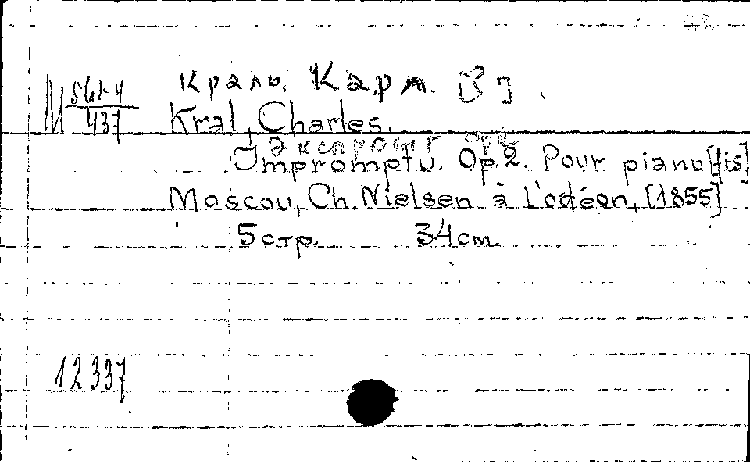 Краль, Карл.
М 437
Kral, Charles.
Impromptu. Op 2. Pour piano [fis]
Moscou, Ch. Nielsen à L'odéon, [1855]
5 стр. 34 cm.
12337